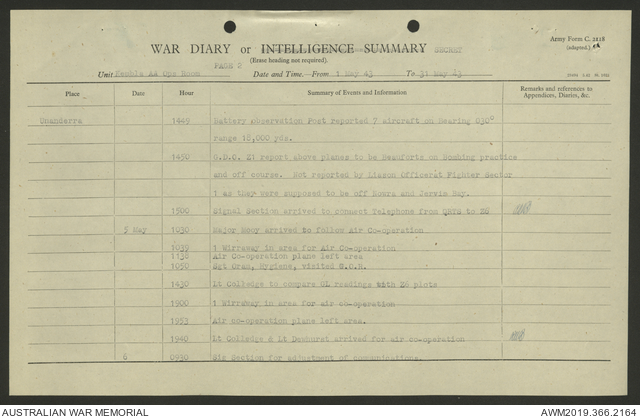 Army Form C. 2118
(adapted.)
WAR DIARY or INTELLIGENCE SUMMARY SECRET
(Erase heading not required).
PAGE 2
Unit Kembla AA Ops Room Date and Time.—From 1 May 43 To 31 May 43
Place Date Hour Summary of Events and Information Remarks and references to Appendices, Diaries, &c.
Unanderra 1449 Battery Observation Post reported 7 aircraft on Bearing 030°
range 18,000 yds.
1450 G.D.O. Z1 report above planes to be Beauforts on Bombing practice
and off course. Not reported by Liason Officer at Fighter Sector
1 as they were supposed to be off Nowra and Jervis Bay.
1500 Signal Section arrived to connect Telephone from to Z6
5 May 1030 Major Mouy arrived to follow Air Co-operation
1039 1 Wirraway in area for Air Co-operation
1138 Air Co-operation plane left area
1050 Sgt Oram, Hygiene, visited G.O.R.
1430 Lt Colledge to compare GL readings with Z6 plots
1900 1 Wirraway in area for air co-operation
1953 Air co-operation plane left area.
1940 Lt Colledge & Lt Dewhurst arrived for air co-operation
6 0930 Sig Section for adjustment of communications.
AUSTRALIAN WAR MEMORIAL AWM2019.366.2164